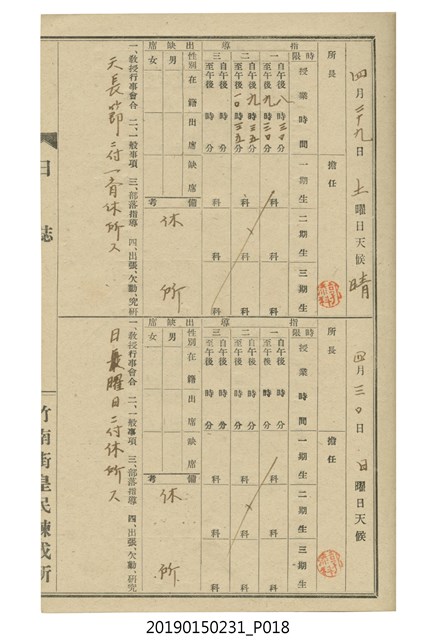 四月二十九日 土曜日天候 晴
所長
擔任
時限 授業時間 一期生 二期生 三期生
指導
一 自午後八時三〇分 至午後九時三〇分 科 科 科
二 自午後九時三五分 至午後一〇時三五分 科 科 科
三 自午後 時 分 至午後 時 分 科 科 科
出缺席
性別 在籍 出席 缺席
男
女
備考
休 所
一、教授行事會合 二、一般事項 三、部落指導 四、出張、欠勤、究研
天長節ニ付一齊休所ス
四月三〇日 日曜日天候
所長
擔任
時限 授業時間 一期生 二期生 三期生
指導
一 自午後 時 分 至午後 時 分 科 科 科
二 自午後 時 分 至午後 時 分 科 科 科
三 自午後 時 分 至午後 時 分 科 科 科
出缺席
性別 在籍 出席 缺席
男
女
備考
休 所
一、教授行事會合 二、一般事項 三、部落指導 四、出張、欠勤、研究
日曜日ニ付休所ス
日誌
竹南街皇民鍊成所
20190150231_P018